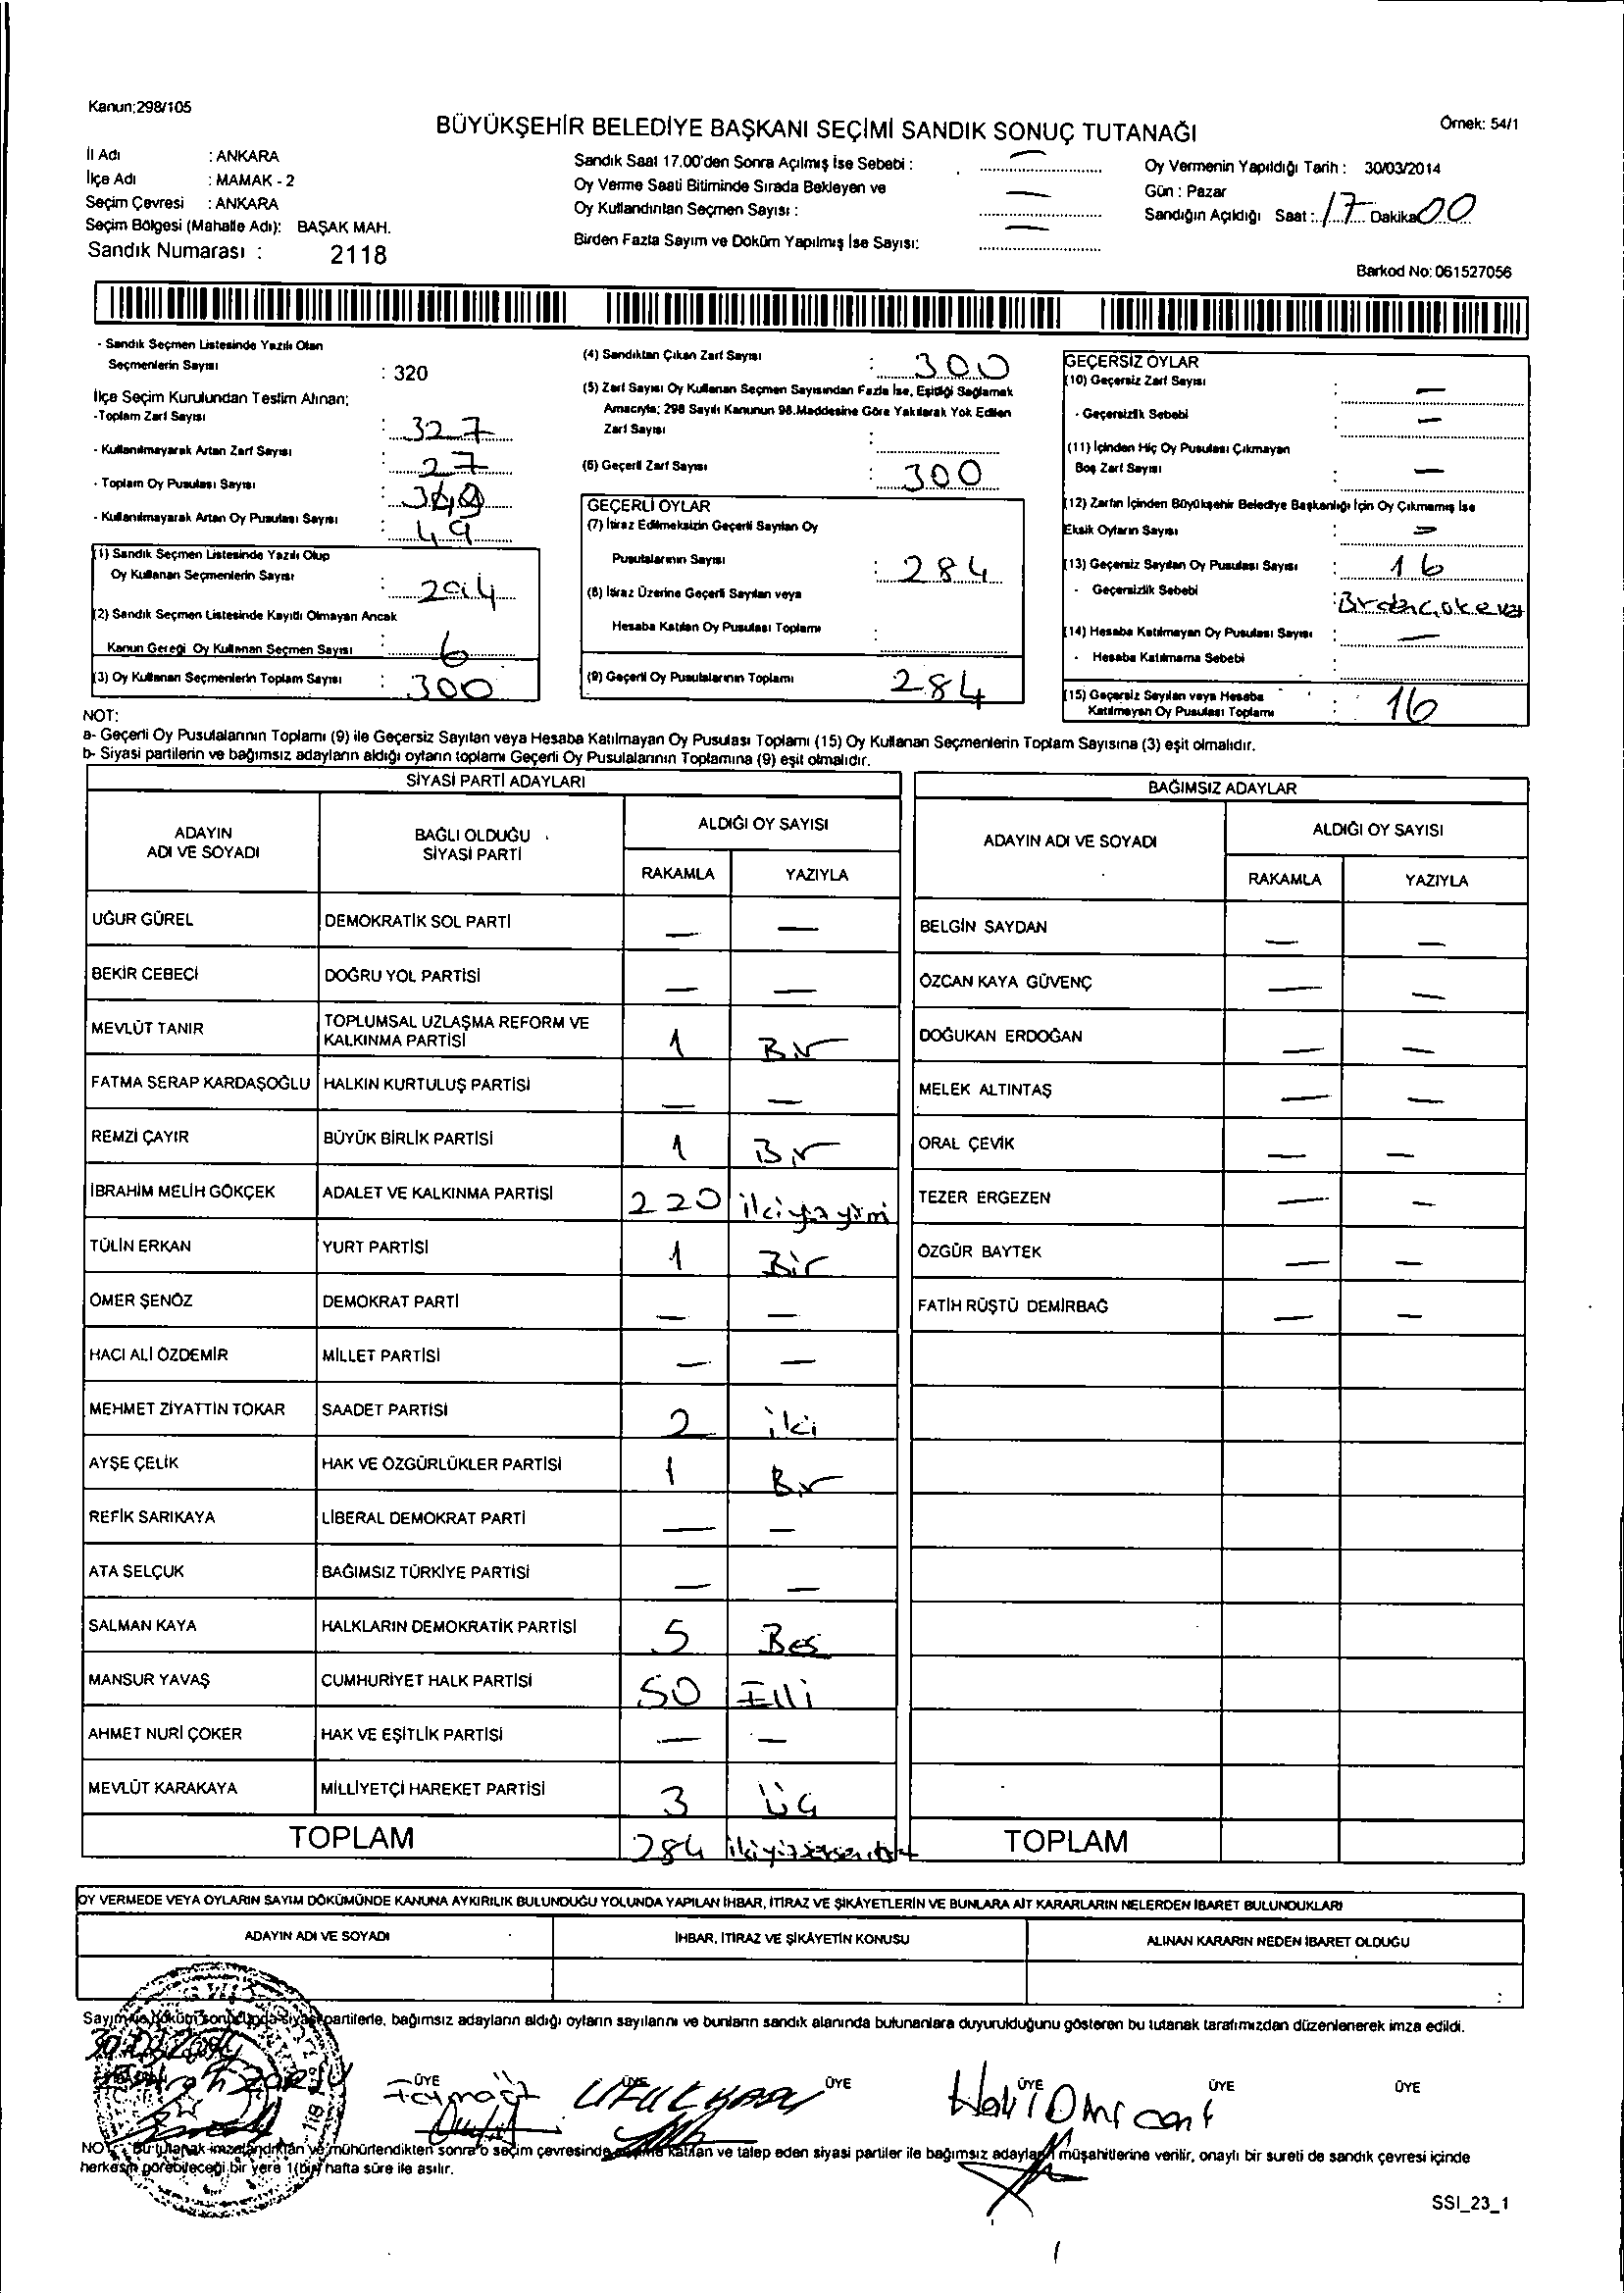 Kanun:298/105
BÜYÜKŞEHİR BELEDİYE BAŞKANI SEÇİMİ SANDIK SONUÇ TUTANAĞI
Örnek: 54/1
İl Adı : ANKARA
İlçe Adı : MAMAK - 2
Seçim Çevresi : ANKARA
Seçim Bölgesi (Mahalle Adı): BAŞAK MAH.
Sandık Numarası : 2118
Sandık Saat 17.00'den Sonra Açılmış İse Sebebi : —
Oy Verme Saati Bitiminde Sırada Bekleyen ve
Oy Kullandırılan Seçmen Sayısı : —
Birden Fazla Sayım ve Döküm Yapılmış İse Sayısı: —
Oy Vermenin Yapıldığı Tarih : 30/03/2014
Gün : Pazar
Sandığın Açıldığı Saat : 17 Dakika 00
Barkod No: 061527056
- Sandık Seçmen Listesinde Yazılı Olan
Seçmenlerin Sayısı : 320
İlçe Seçim Kurulundan Teslim Alınan;
-Toplam Zarf Sayısı : 327
- Kullanılmayarak Artan Zarf Sayısı : 27
- Toplam Oy Pusulası Sayısı :
- Kullanılmayarak Artan Oy Pusulası Sayısı : 49
(1) Sandık Seçmen Listesinde Yazılı Olup
Oy Kullanan Seçmenlerin Sayısı : 294
(2) Sandık Seçmen Listesinde Kayıtlı Olmayan Ancak
Kanun Gereği Oy Kullanan Seçmen Sayısı : 6
(3) Oy Kullanan Seçmenlerin Toplam Sayısı : 300
(4) Sandıktan Çıkan Zarf Sayısı : 300
(5) Zarf Sayısı Oy Kullanan Seçmen Sayısından Fazla İse, Eşitliği Sağlamak
Amacıyla; 298 Sayılı Kanunun 98.Maddesine Göre Yakılarak Yok Edilen
Zarf Sayısı :
(6) Geçerli Zarf Sayısı : 300
GEÇERLİ OYLAR
(7) İtiraz Edilmeksizin Geçerli Sayılan Oy
Pusulalarının Sayısı : 284
(8) İtiraz Üzerine Geçerli Sayılan veya
Hesaba Katılan Oy Pusulası Toplamı :
(9) Geçerli Oy Pusulalarının Toplamı 284
GEÇERSİZ OYLAR
(10) Geçersiz Zarf Sayısı : —
- Geçersizlik Sebebi : —
(11) İçinden Hiç Oy Pusulası Çıkmayan
Boş Zarf Sayısı : —
(12) Zarfın İçinden Büyükşehir Belediye Başkanlığı İçin Oy Çıkmamış İse
Eksik Oyların Sayısı : —
(13) Geçersiz Sayılan Oy Pusulası Sayısı : 16
- Geçersizlik Sebebi :
(14) Hesaba Katılmayan Oy Pusulası Sayısı : —
- Hesaba Katılmama Sebebi :
(15) Geçersiz Sayılan veya Hesaba
Katılmayan Oy Pusulası Toplamı : 16
NOT:
a- Geçerli Oy Pusulalarının Toplamı (9) ile Geçersiz Sayılan veya Hesaba Katılmayan Oy Pusulası Toplamı (15) Oy Kullanan Seçmenlerin Toplam Sayısına (3) eşit olmalıdır.
b- Siyasi partilerin ve bağımsız adayların aldığı oyların toplamı Geçerli Oy Pusulalarının Toplamına (9) eşit olmalıdır.
SİYASİ PARTİ ADAYLARI
ADAYIN ADI VE SOYADI BAĞLI OLDUĞU SİYASİ PARTİ ALDIĞI OY SAYISI
RAKAMLA YAZIYLA
UĞUR GÜREL DEMOKRATİK SOL PARTİ — —
BEKİR CEBECİ DOĞRU YOL PARTİSİ — —
MEVLÜT TANIR TOPLUMSAL UZLAŞMA REFORM VE KALKINMA PARTİSİ 1 Bir
FATMA SERAP KARDAŞOĞLU HALKIN KURTULUŞ PARTİSİ — —
REMZİ ÇAYIR BÜYÜK BİRLİK PARTİSİ 1 Bir
İBRAHİM MELİH GÖKÇEK ADALET VE KALKINMA PARTİSİ 220 ikiyüzyirmi
TÜLİN ERKAN YURT PARTİSİ 1 Bir
ÖMER ŞENÖZ DEMOKRAT PARTİ — —
HACI ALİ ÖZDEMİR MİLLET PARTİSİ — —
MEHMET ZİYATTİN TOKAR SAADET PARTİSİ 2 iki
AYŞE ÇELİK HAK VE ÖZGÜRLÜKLER PARTİSİ 1 Bir
REFİK SARIKAYA LİBERAL DEMOKRAT PARTİ — —
ATA SELÇUK BAĞIMSIZ TÜRKİYE PARTİSİ — —
SALMAN KAYA HALKLARIN DEMOKRATİK PARTİSİ 5 Beş
MANSUR YAVAŞ CUMHURİYET HALK PARTİSİ 50 Elli
AHMET NURİ ÇOKER HAK VE EŞİTLİK PARTİSİ — —
MEVLÜT KARAKAYA MİLLİYETÇİ HAREKET PARTİSİ 3 Üç
TOPLAM 284 ikiyüzseksendört
BAĞIMSIZ ADAYLAR
ADAYIN ADI VE SOYADI ALDIĞI OY SAYISI
RAKAMLA YAZIYLA
BELGİN SAYDAN — —
ÖZCAN KAYA GÜVENÇ — —
DOĞUKAN ERDOĞAN — —
MELEK ALTINTAŞ — —
ORAL ÇEVİK — —
TEZER ERGEZEN — —
ÖZGÜR BAYTEK — —
FATİH RÜŞTÜ DEMİRBAĞ — —
TOPLAM
OY VERMEDE VEYA OYLARIN SAYIM DÖKÜMÜNDE KANUNA AYKIRILIK BULUNDUĞU YOLUNDA YAPILAN İHBAR, İTİRAZ VE ŞİKÂYETLERİN VE BUNLARA AİT KARARLARIN NELERDEN İBARET BULUNDUKLARI
ADAYIN ADI VE SOYADI İHBAR, İTİRAZ VE ŞİKÂYETİN KONUSU ALINAN KARARIN NEDEN İBARET OLDUĞU
Sayım ve döküm sonucunda siyasi partilerle, bağımsız adayların aldığı oyların sayılarını ve bunların sandık alanında bulunanlara duyurulduğunu gösteren bu tutanak tarafımızdan düzenlenerek imza edildi.
30.03.2014
ÜYE ÜYE ÜYE ÜYE ÜYE ÜYE
NOT: Bu tutanak imzalandıktan ve mühürlendikten sonra o seçim çevresinde seçime katılan ve talep eden siyasi partiler ile bağımsız adayların müşahitlerine verilir, onaylı bir sureti de sandık çevresi içinde
herkesin görebileceği bir yere 1(bir) hafta süre ile asılır.
SSI_23_1